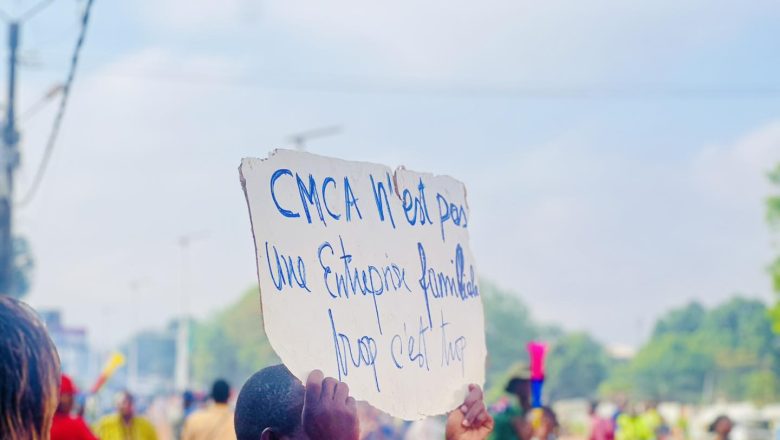 CMCA N'est pas
Une Entreprise familiale
trop c'est trop